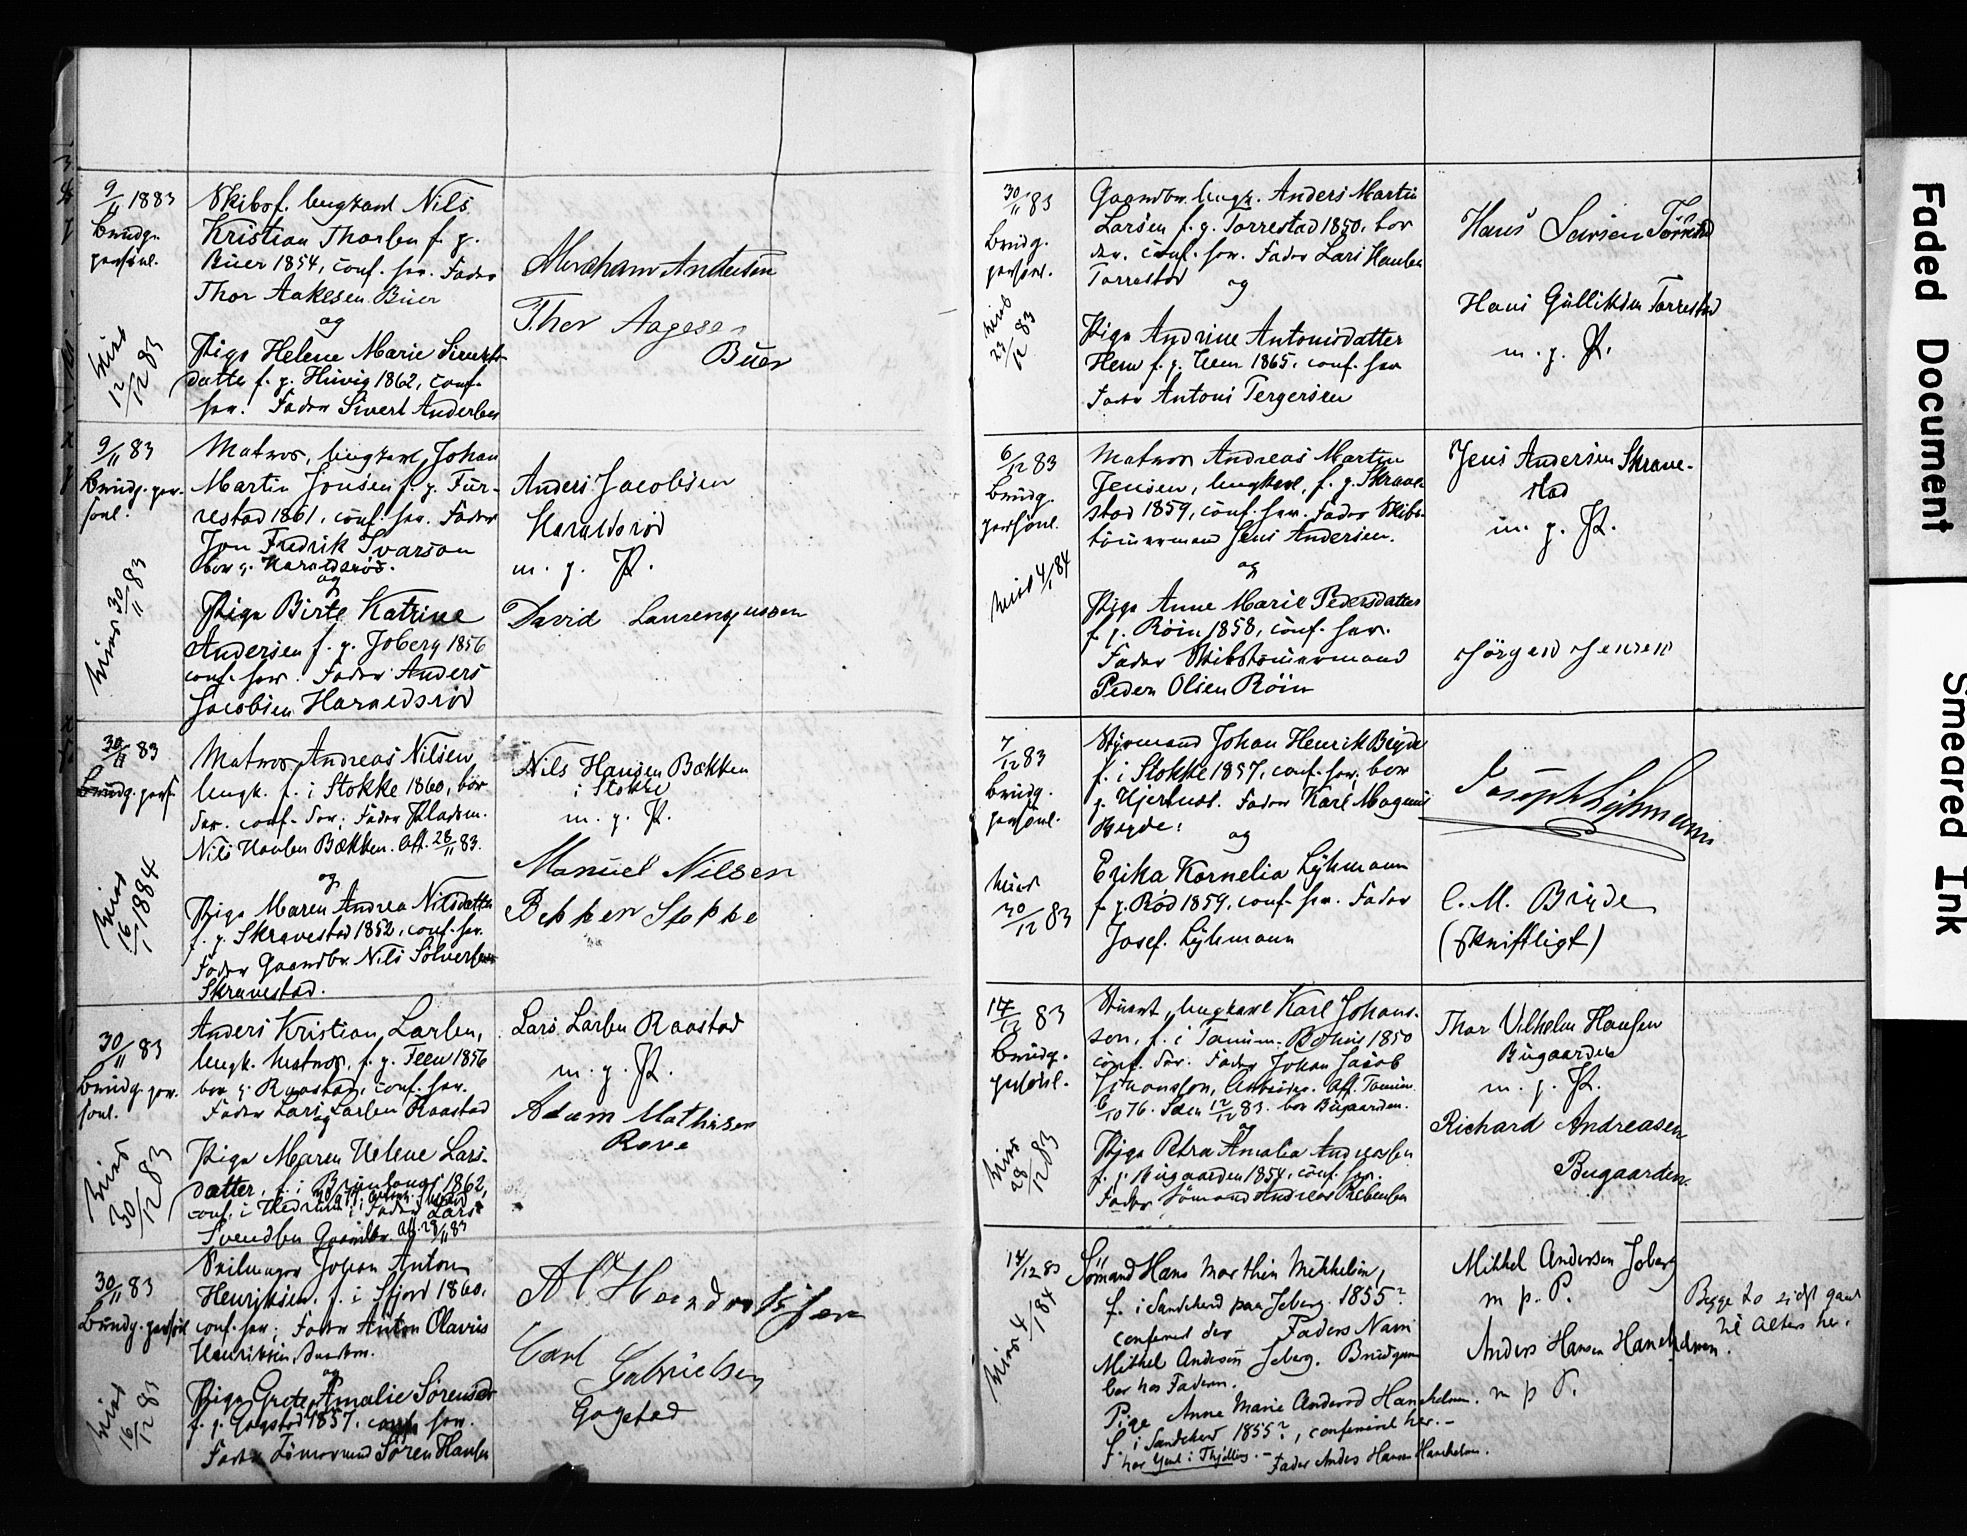 9/11 1883
Brudg.
personl.
viet
12/12 83
Skibsf. ungkarl Nils
Kristian Thorsen f. p.
Buer 1854, conf. her. Fader
Thor Aakesen Buer
og
Pige Helene Marie Siverts-
datter f. p. Huvig 1862, conf.
her. Fader Sivert Andersen
Abraham Andersen
Thor Aagesen
Buer
9/11 83
Brudg. per-
sonl.
viet 30/11 83
Matros, ungkarl Johan
Martin Jonsen f. p. Fur-
restad 1861, conf. her. Fader
Jon Fredrik Ivarson
bor p. Haraldsrød.
og
Pige Birte Katrine
Andersen f. p. Joberg 1856
conf. her. Fader Anders
Jacobsen Haraldsrød
Anders Jacobsen
Haraldsrød
m. p. P.
David Laurengussen
30/11 83
Brudg. pers.
viet
16/1 1884
Matros Andreas Nilsen
ungk. f. i Stokke 1860, bor
der. conf. der; Fader Pladsm.
Nils Hansen Bækken. Att. 28/11 83.
og
Pige Maren Andrea Nilsdatter
f. p. Skravestad 1852, conf. her.
Fader Gaardbr. Nils Sølversen
Skravestad.
Nils Hansen Bækken
i Stokke
m. p. P.
Manuel Nilsen
Bekken Stokke
30/11 83
Brudg. per-
sonl.
viet
30/12 83
Anders Kristian Larsen,
ungk. Matros, f. p. Teen 1856
bor p. Raastad, conf. her.
Fader Lars Larsen Raastad
og
Pige Maren Helene Lars-
datter, f. i Brunlanæs 1862,
conf. i Hedrum; Fader Lars
Svendsen Gaardbr. Att. 29/11 83
Lars Larsen Raastad
m. p. P.
Adam Mathisen
Rove
30/11 83
Brudg. personl
viet
16/12 83
Seilmager Johan Anton
Henriksen f. i Sfjord 1860,
conf. her; Fader Anton Olavus
Henriksen,
og
Pige Grete Amalie Sørensdr
f. p. Gogstad 1857. conf. her.
Fader Tømermand Søren Hansen
A O Hendriksen
Carl
Gabrielsen
Gogstad
30/11 83
Brudg.
personl.
viet
23/12 83
Gaardbr. ungk. Anders Martin
Larsen f. p. Torrestad 1850, bor
der. conf. her. Fader Lars Hansen
Torrestad
og
Pige Andrine Antonisdatter
Hem f. p. Hem 1865. conf. her
Fader Antoni Tergersen
Hans Larsen Torrestad
Hans Gulliksen Torrestad
m. p. P.
6/12 83
Brudg.
personl.
viet 4/1 84
Matros Andreas Martin
Jensen, ungkarl, f. p. Skrave-
stad 1859, conf. her. Fader Skibs-
tømermand Jens Andersen.
og
Pige Anne Marie Pedersdatter
f. p. Røin 1858, conf. her.
Fader Skibstømermand
Peder Olsen Røin
Jens Andersen Skrave-
stad
m. p. P.
Jørgen Jensen
7/12 83
Brudg.
personl.
viet
30/12 83
Styrmand Johan Henrik Bryde
f. i Stokke 1857, conf. her; bor
p. Hjertnæs. Fader Karl Magnus
Bryde:
og
Erika Kornelia Lyhmann
f. p. Rød 1859. conf. her. Fader
Josef. Lyhmann
Joseph Lyhmann
C. M. Bryde
(Skriftligt)
14/12 83
Brudg.
personl.
viet
28/12 83
Stuert, ungkarl Karl Johans-
son, f. i Tanum. Bohus 1850
conf. der. Fader Johan Jacob
Johansson, Arbeider. Att. Tanum
6/10 76. Sam 12/12 83. bor Bugaarden.
og
Pige Petra Amalia Andreassen
f. p. Bugaarden 1854, conf. her.
Fader Sømand Andreas Rebensen
Thor Vilhelm Hansen
Bugaarden
m. p. P.
Richard Andreasen
Bugaarden.
14/12 83
viet 4/1 84
Sømand Hans Marthin Mikkelsen,
f. i Sandeherd paa Joberg. 1855?
confirmert der Faders Navn
Mikkel Andersen Joberg. Brudgom
bor hos Faderen.
Pige Anne Marie Andersd Haneholmen.
f. i Sandeherd 1855?, confirmeret her.-
har tjent i Thjølling. - Fader Anders Hansen Haneholmen.
Mikkel Andersen Joberg
m p. P.
Anders Hansen Haneholmen.
m p P.
Begge to sidst gaaet
til Alters her.
Faded Document
Smeared Ink